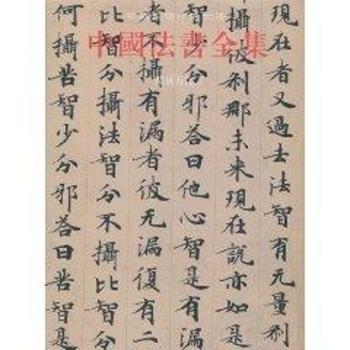 中國法書全集
現在者又過去法智有无量刹
攝彼刹那未来現在說亦如是
智少分邪荅曰他心智是有漏
者不攝有漏者彼无漏復有二
比智分攝法智分不攝比智分
何攝苦智少分邪荅曰苦智是